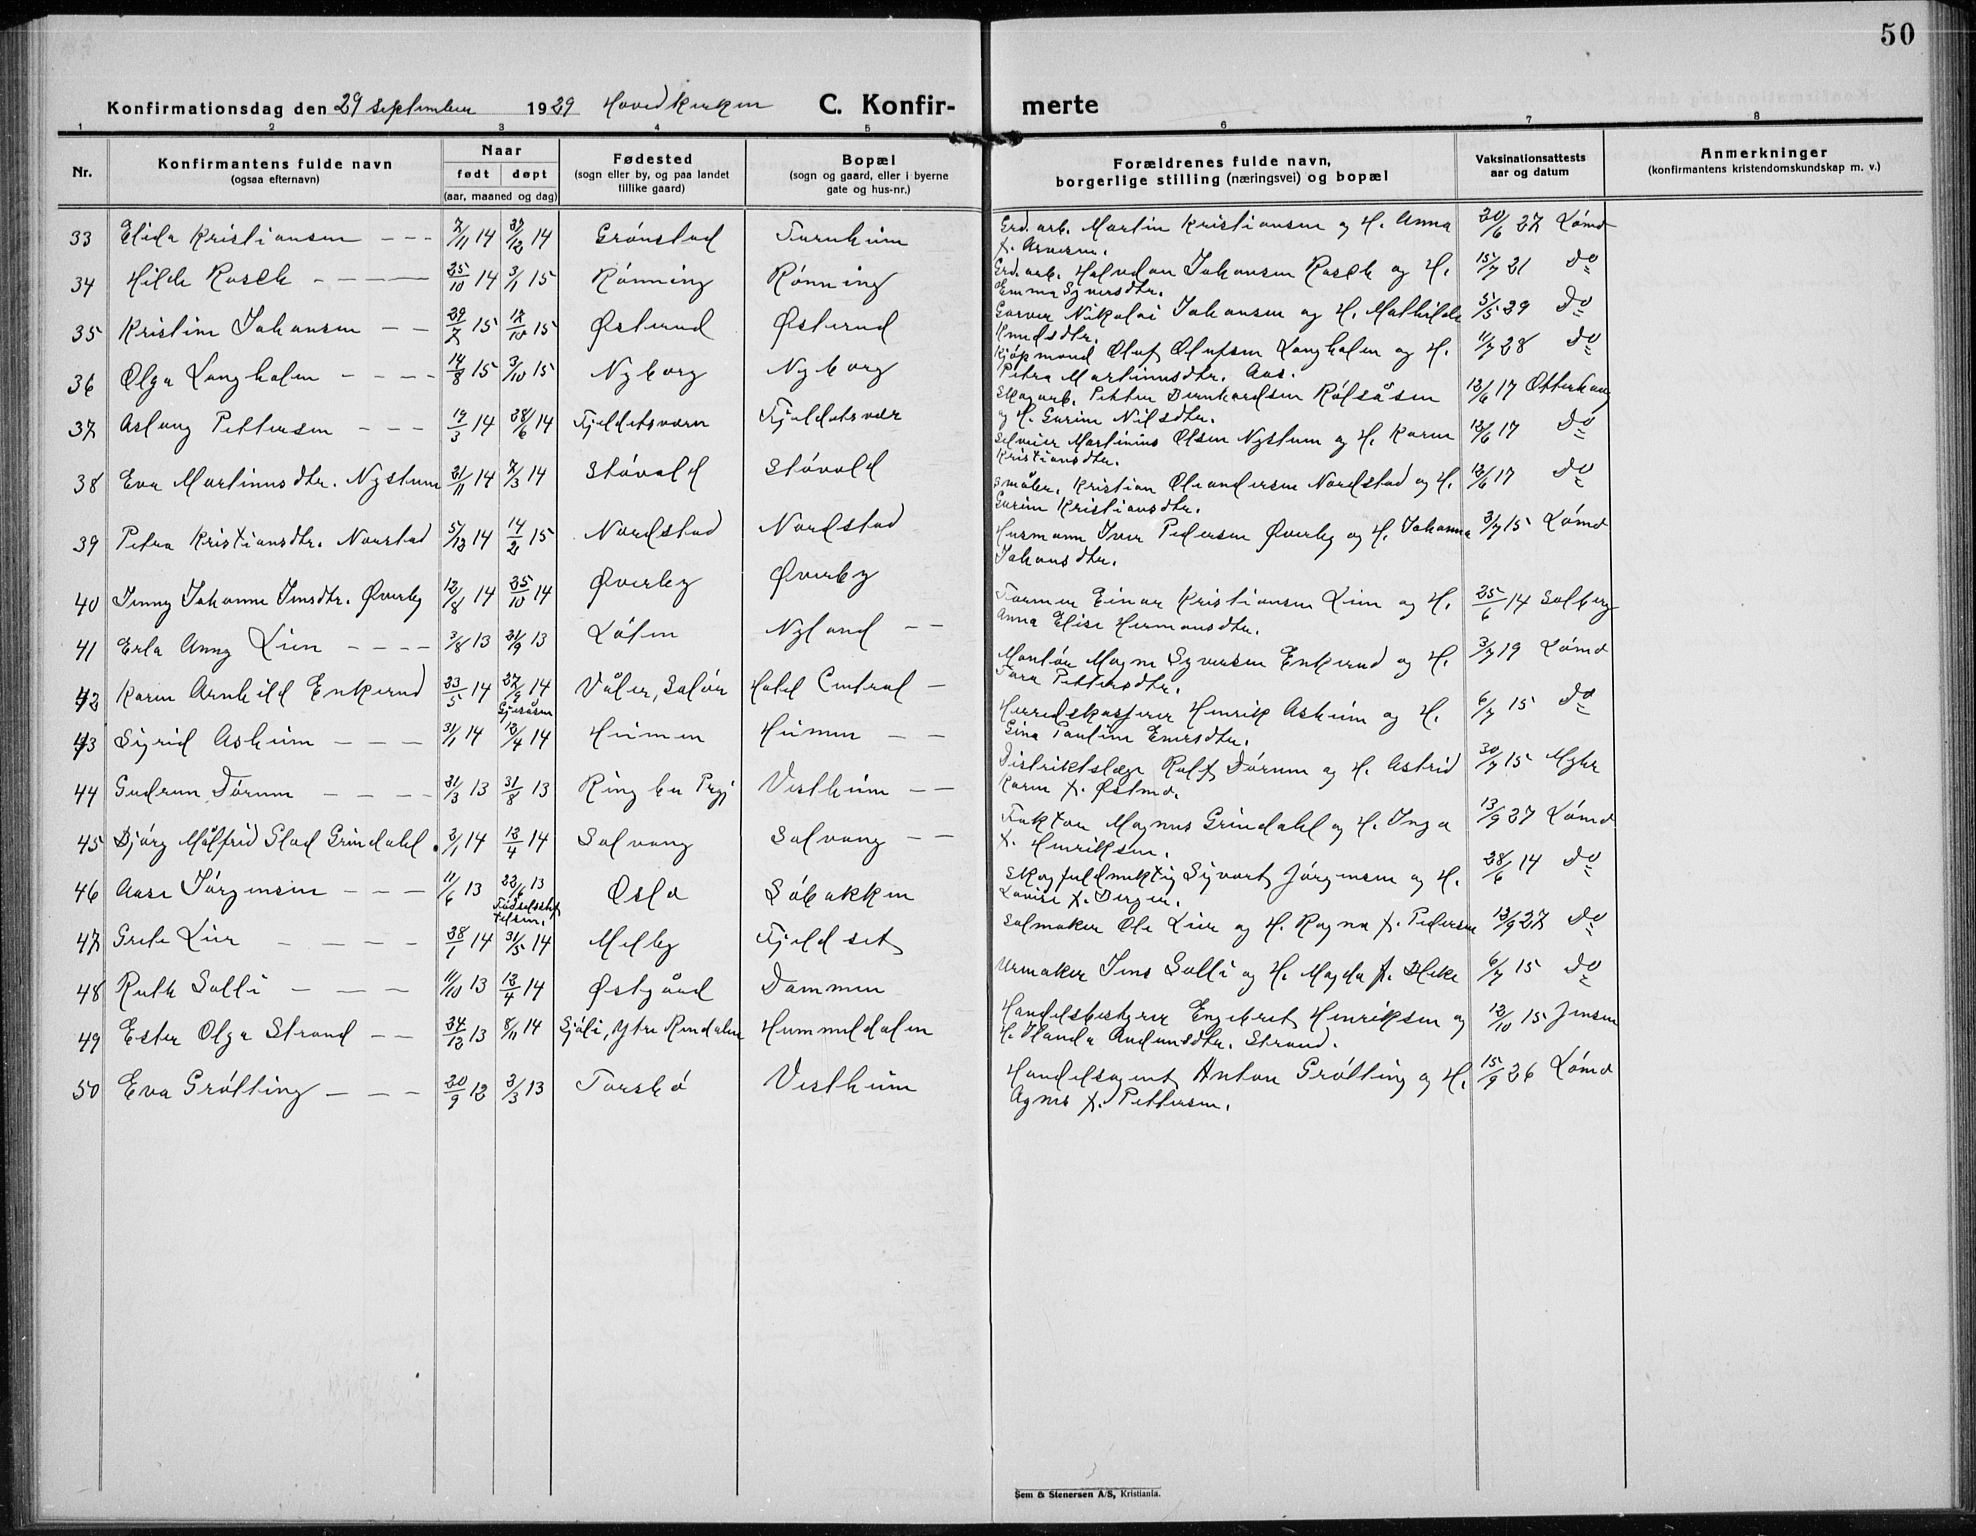 50
Konfirmationsdag den 29 september 1929 Hovedkirken C. Konfir- merte
1 2 3 4 5 6 7 8
Nr. Konfirmantens fulde navn (ogsaa efternavn) Naar født døpt (aar, maaned og dag) Fødested (sogn eller by, og paa landet tillike gaard) Bopæl (sogn og gaard, eller i byerne gate og hus-nr.) Forældrenes fulde navn, borgerlige stilling (næringsvei) og bopæl Vaksinationsattests aar og datum Anmerkninger (konfirmantens kristendomskundskap m. v.)
33 Elida Kristiansen - - - 7/11 14 27/12 14 Grönstad Furuheim Erd. arb. Martin Kristiansen og H. Anna
f. Arnesen. 20/6 27 Lömo
34 Hilde Rasch - - - - 25/10 14 3/1 15 Rönning Rönning Erd. arb. Halvdan Johansen Rasch og H.
Emma Syversdtr. 15/7 21 Do
35 Kristine Johansen - - 29/7 15 17/10 15 Østerud Østerud Garver Nikolai Johansen og H. Mathilde
Knudsdtr. 5/5 29 Do
36 Olga Langholm - - - - 14/8 15 3/10 15 Nyborg Nyborg Kjöpmand Oluf Olufsen Langholm og H.
Petra Martinusdtr. Aas. 11/7 28 Do
37 Aslaug Pettersen - - - 19/3 14 28/6 14 Fjeldetsværen Fjeldetsvær Skogarb. Petter Bernhardsen Rölsåsen
og H. Gurine Nilsdtr. 12/6 17 Otterhaug
38 Eva Martinusdtr. Nystuen 21/11 14 7/3 14 Stövold Stövold Selveier Martinius Olsen Nystuen og H. Karen
Kristiansdtr. 12/6 17 Do
39 Petra Kristiansdtr. Norstad 5/12 14 14/2 15 Nordstad Nordstad Småbr. Kristian Oleandersen Nordstad og H.
Gurine Kristiansdtr. 12/6 17 Do
40 Jenny Johanne Imsdtr. Øverby 12/8 14 25/10 14 Øverby Øverby Husmann Iver Pedersen Øverby og H. Johanna
Johansdtr. 3/7 15 Lömo
41 Erla Anny Lien - - - - 3/8 13 21/9 13 Löten Nyland - - Former Einar Kristiansen Lien og H.
Anna Elise Hermansdtr. 25/6 14 Solberg
42 Karen Arnhild Enkerud 23/5 14 27/9 14 Gjesåsen Våler, Solör Hotel Central - Montör Magne Syversen Enkerud og H.
Tara Pettersdtr. 3/7 19 Lömo
43 Sigrid Asheim - - - 31/1 14 12/4 14 Heimen Heimen - - Herredskasserer Henrik Asheim og H.
Gina Pauline Enersdtr. 6/7 15 Do
44 Gudrun Dörum - - - - 31/3 13 31/8 13 Ringebu Prgj Vestheim - - Distriktslæge Rolf Dörum og H. Astrid
Karen f. Østmo. 30/7 15 Myhr
45 Björg Målfrid Stad Grindahl. 2/1 14 12/4 14 Solvang Solvang - - Faktor Magnus Grindahl og H. Inga
f. Henriksen. 13/9 27 Lömo
46 Aase Jörgensen - - - 11/6 13 22/6 13 Oslo Söbakken Skogfuldmektig Syvert Jörgensen og H.
Lovise f. Berger. 28/6 14 Do
47 Grete Lier - - - - 28/1 14 31/5 14 Melby Fjeldset Salmaker Ole Lier og H. Ragna f. Pedersen 13/9 27 Do
48 Ruth Solli - - - - 11/10 13 12/4 14 Østgård Dammen Urmaker Jens Solli og H. Magda f. Bleke 6/7 15 Do
49 Ester Olga Strand - - 24/12 13 8/11 14 Sjöli, Ytre Rendalen Hummeldalen Handelsbestyrer Engebret Henriksen og
H. Handa Audunsdtr. Strand. 12/10 15 Jensen
50 Eva Grötting - - - 20/9 12 2/3 13 Torsbö Vestheim Handelsagent Anton Grötting og H.
Agnes f. Pettersen. 15/9 26 Lömo
Sem & Stenersen A/S, Kristiania.